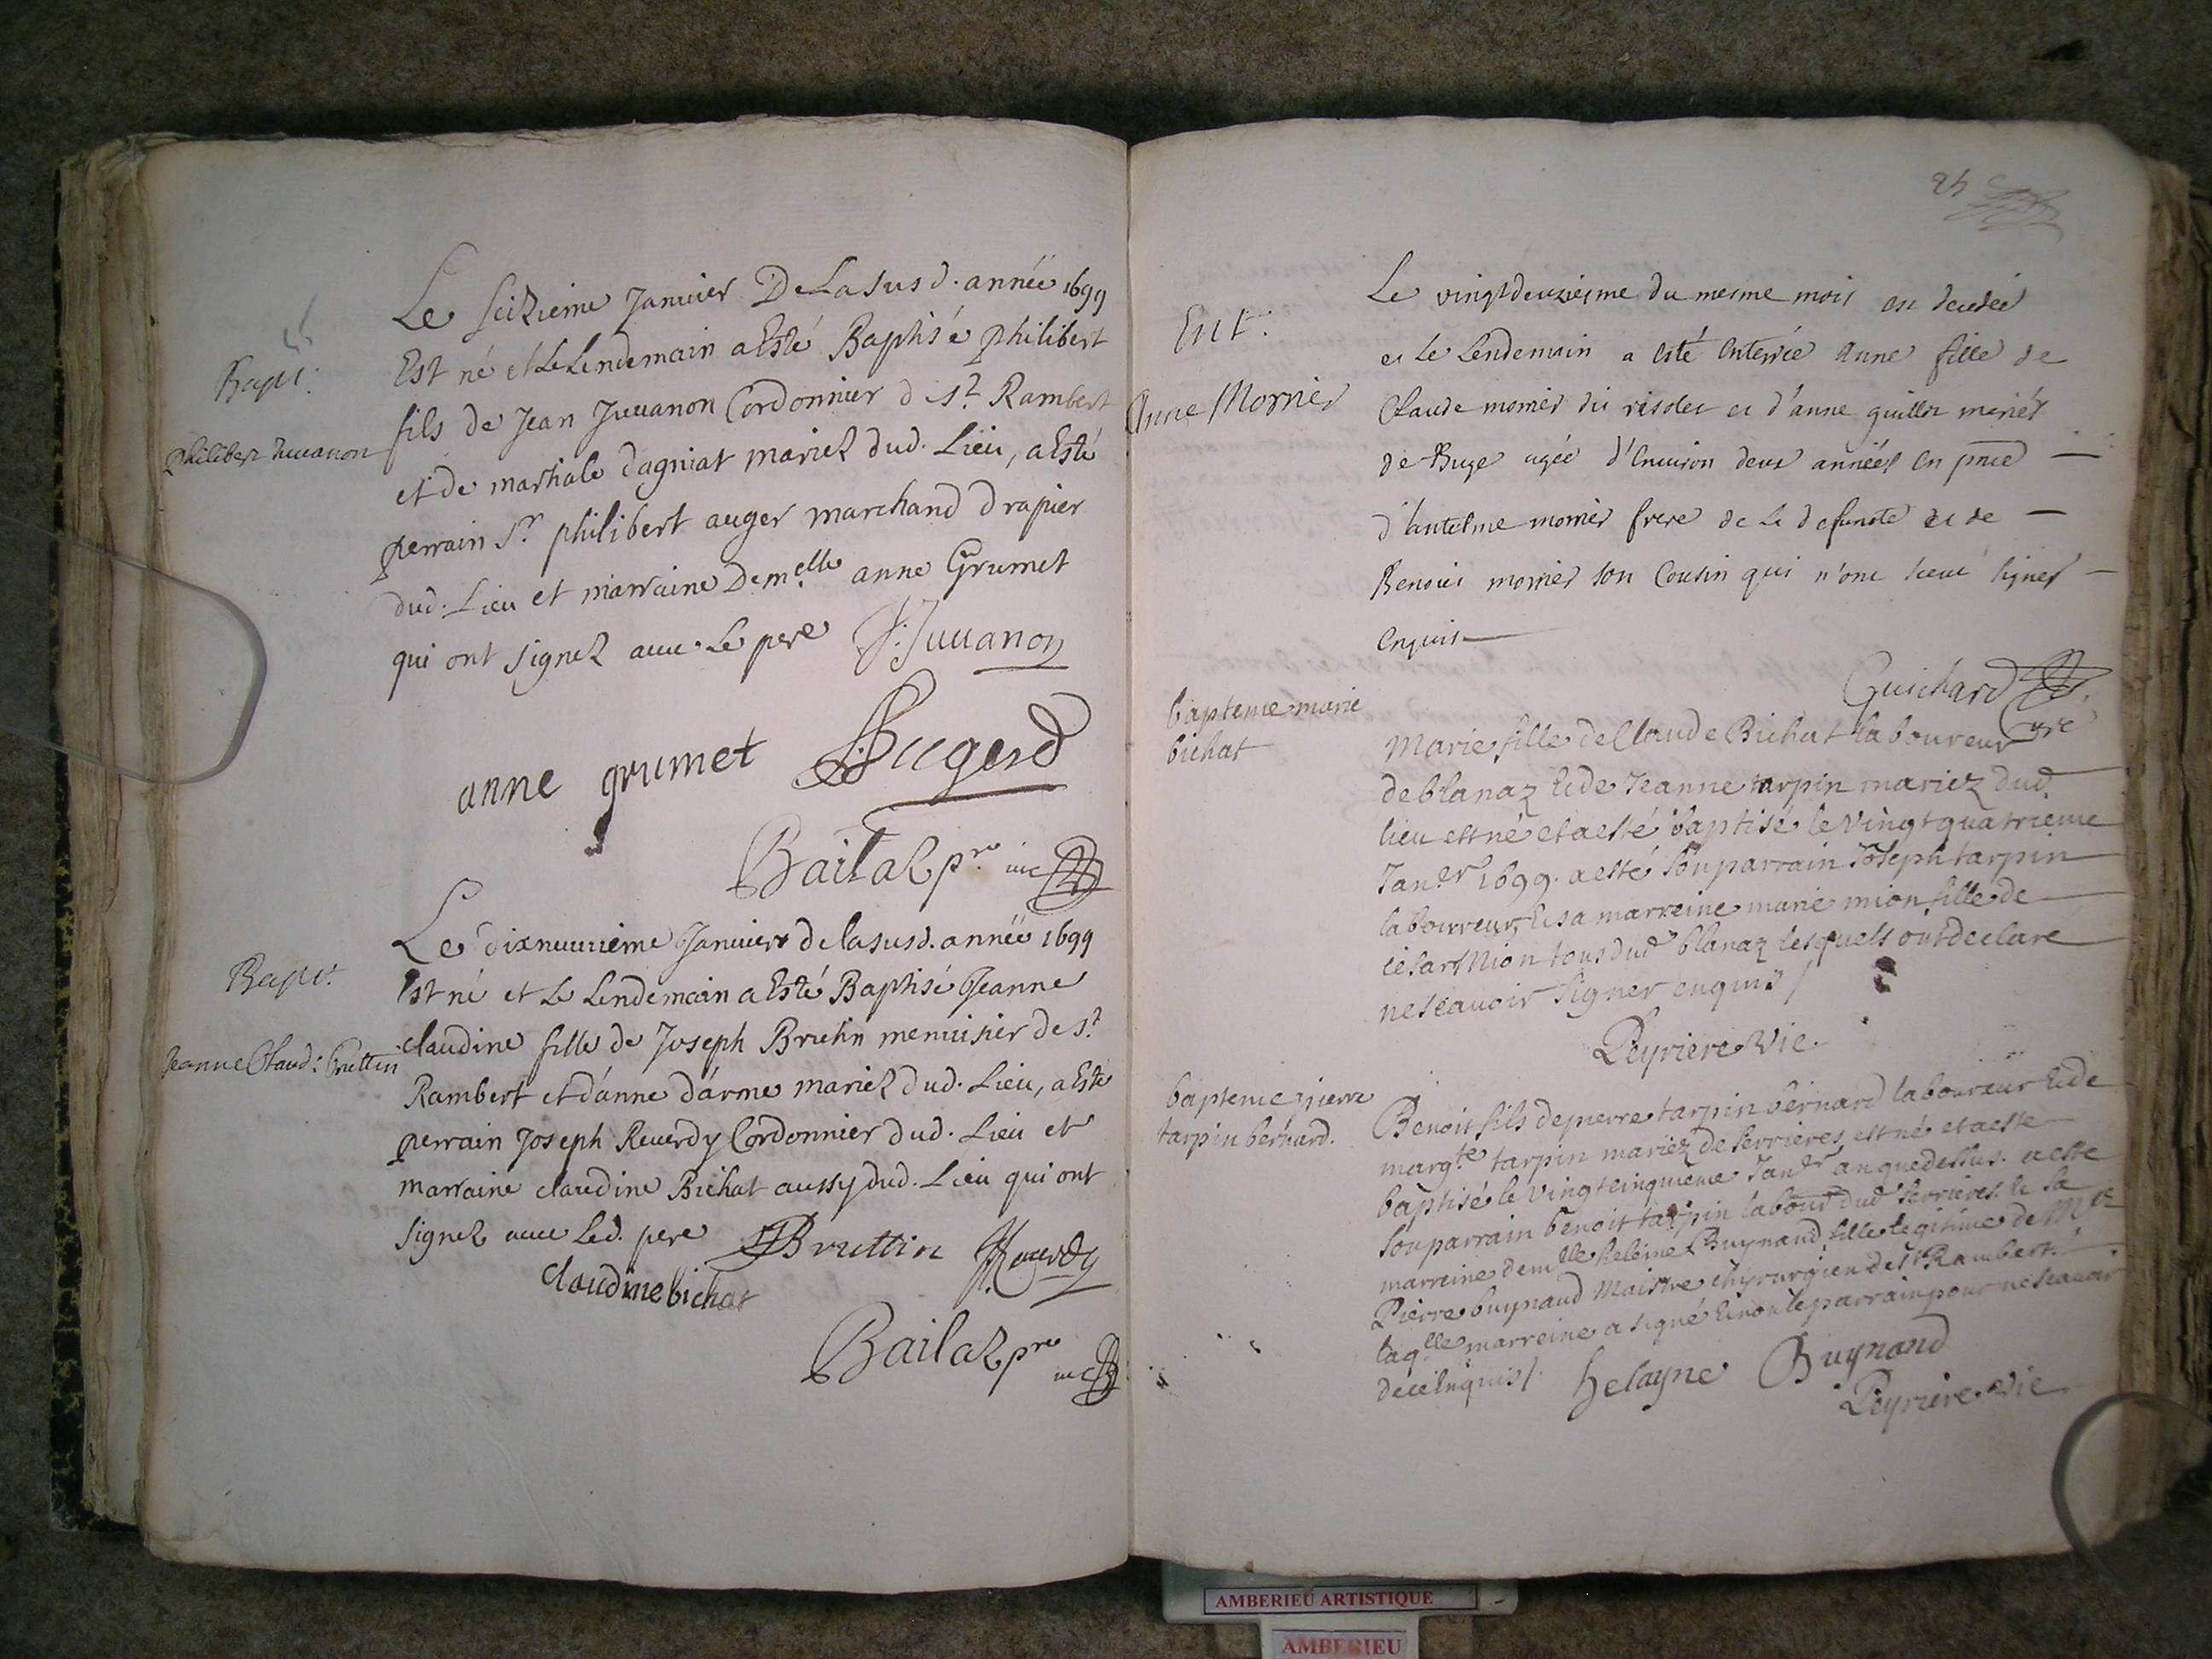 Bapt.
philibert Juuanon
Le seizieme Januier De La susd. année 1699
Est né et Le Lendemain a Esté Baptisé philibert
fils de Jean Juuanon Cordonnier d St. Rambert
et de martiale dagniat mariez dud. Lieu, a Esté
perrain Sr. philibert auger marchand drapier
dud. Lieu et marraine Demelle anne Grumet
qui ont signez auec Le pere J: Juuanon
anne grumet
Bailaz pre
Bapt.
Jeanne Claud: Bruttin
Le dixneuuieme Januier de la susd. année 1699
Est né et Le Lendemain a Esté Baptisé Jeanne
claudine fille de Joseph Bruttin menuisier de St
Rambert et d'anne d'arme mariez dud. Lieu, a Esté
perrain Joseph Reuerdy Cordonnier dud. Lieu et
marraine claudine Bichat aussy dud. Lieu qui ont
signez auec Led. pere JBruttin JReuerdy
claudine bichat
Bailaz pre
25
Ent.
Anne Mornier
Le vingtdeuziesme du mesme mois est decedée
et Le Lendemain a esté enterrée anne fille de
Claude mornier dit et d'anne mariés
de Buge agée d'enuiron deux années en pnce
d'antelme mornier frere de La defuncte et de
Benoist mornier son Cousin qui n'ont sceu signer
enquis
Guichard
Cure
bapteme marie
bichat
Marie fille de Claude Bichat laboureur
de blanaz & de Jeanne tarpin mariez dud
lieu est né et a esté baptisé le vingt quatrieme
Janer 1699. a esté son parrain Joseph tarpin
laboureur, & sa marreine marie mion fille de
cesar Mion tous dud blanaz lesquels ont declaré
ne scauoir signer enquis /
Peyriere vic.
bapteme pierre
tarpin bernard.
Benoit fils de pierre tarpin bernard laboureur & de
margte tarpin mariez de serrieres est né et a esté
baptisé le vingt cinquieme Janer an que dessus. a esté
son parrain benoit tarpin labour dud serrieres. & sa
marreine demlle heleine Buynand fille legitime de Mre
Pierre buynand Maistre chyrurgien de St Rambert.
laqlle marreine a signé & non le parrain pour ne scauoir
de ce enquis /. helayne Buynand
Peyriere vic
AMBERIEU ARTISTIQUE
AMBERIEU